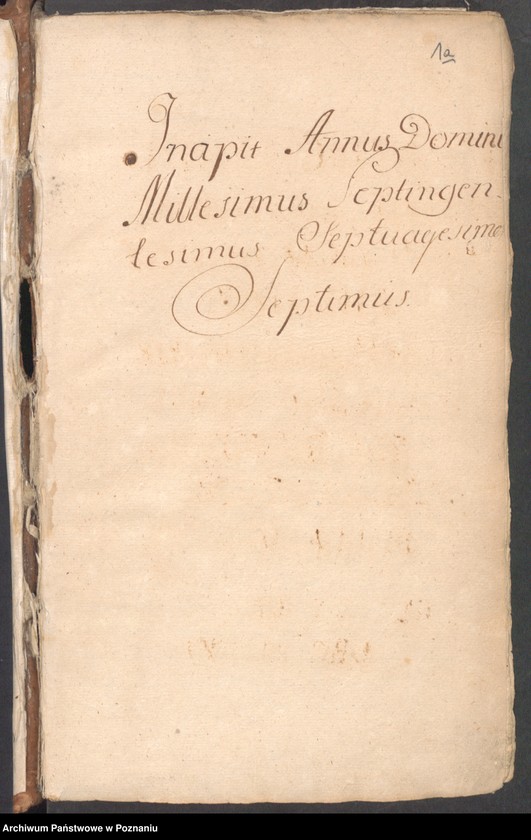 1a
Incipit Annus Domini
Millesimus Septingen-
tesimus Septuagesimo
Septimus.
Archiwum Państwowe w Poznaniu